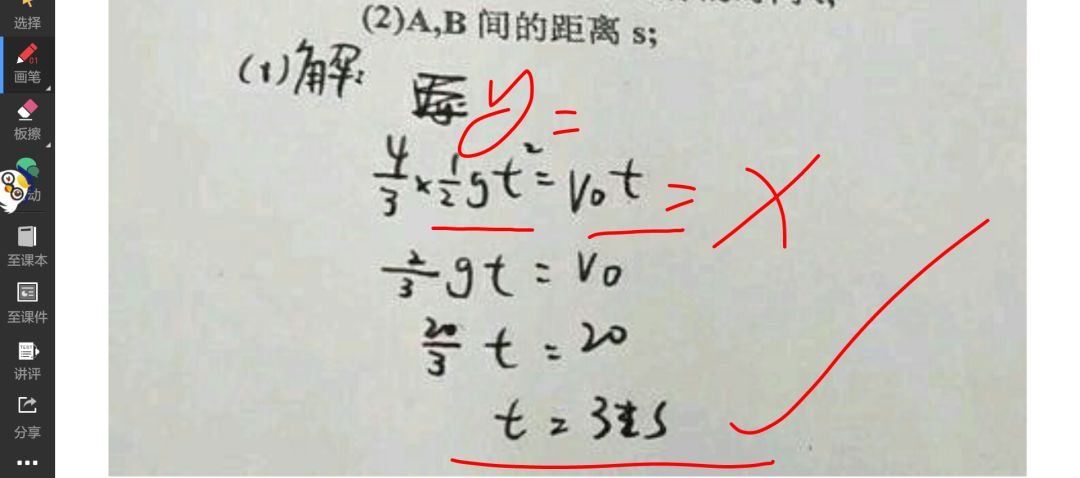 选择
画笔
板擦
动
至课本
至课件
讲评
分享
(2)A,B 间的距离 s;
(1)解:
y =
4/3 × 1/2 gt² = v₀t = x
2/3 gt = v₀
20/3 t = 20
t = 3s